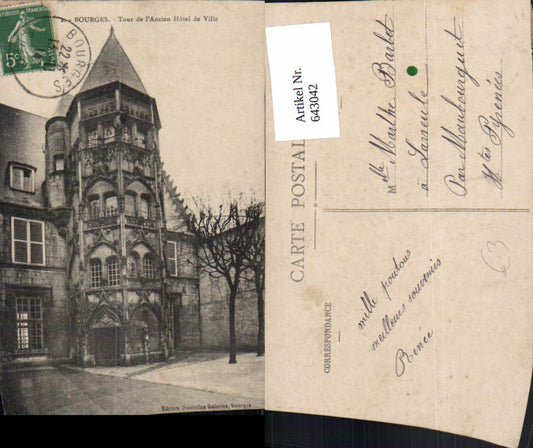 BOURGES. - Tour de l'Ancien Hôtel de Ville
BOURGES
22
5c
Edition Nouvelles Galeries, Bourges
Artikel Nr.
643042
CARTE POSTALE
CORRESPONDANCE
Mlle Marthe Barbot
à Larreule
Par Maubourguet
Htes Pyrénées
mille poutous
meilleurs souvenirs
Renée
63